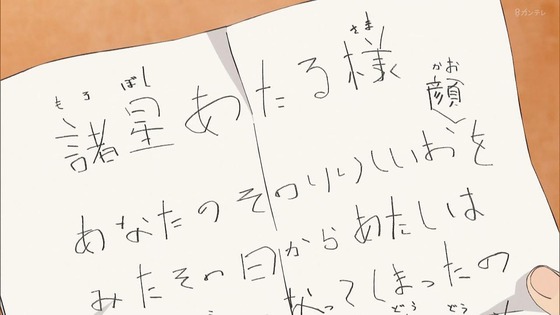 8カンテレ
さま
もろ ぼし
諸星あたる様
かお
顔
あなたのそのりりしいおを
みたその日からあたしは
なってしまったの
どう どう